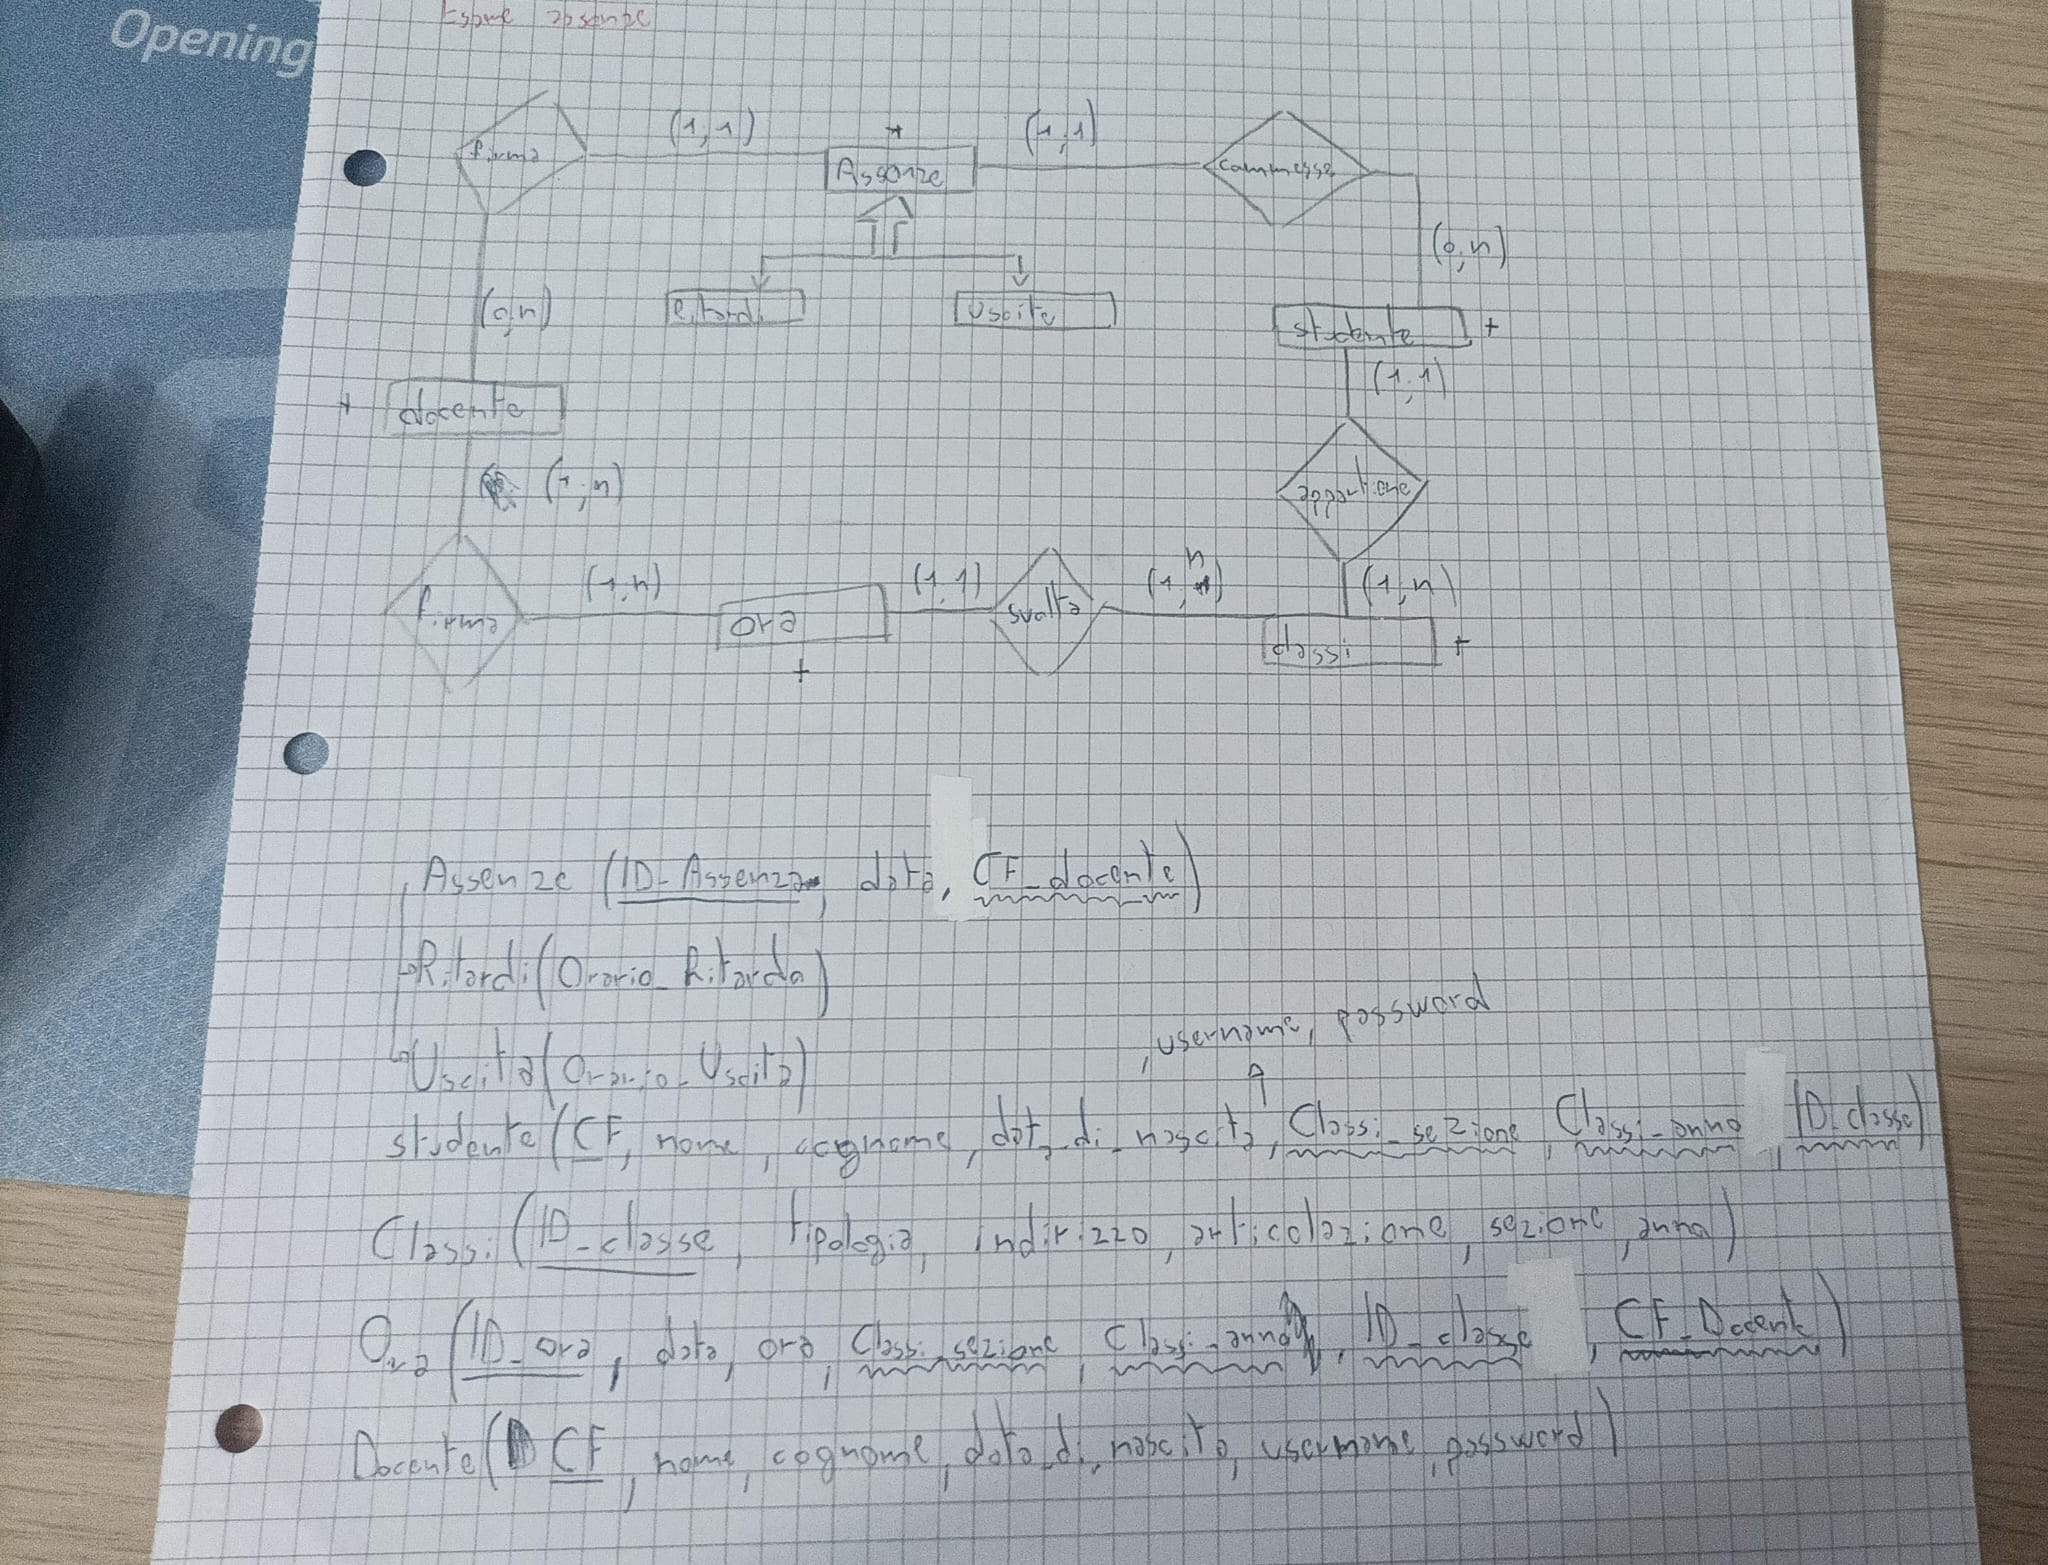 Opening
Esame assenze
firma (1,1) Assenze (1,1) commesse
(0,n)
(0,n) Ritardi Uscite studente +
(1,1)
+ docente
(1,n) appartiene
firma (1,n) ora (1,1) svolta (1,n) (1,n)
+ classi +
Assenze (ID_Assenza, data, CF_docente)
Ritardi (Orario_Ritardo)
, username, password
Uscita (Orario_Uscita)
studente (CF, nome, cognome, data_di_nascita, Classi_sezione, Classi_anno, ID_classe)
Classi (ID_classe, tipologia, indirizzo, articolazione, sezione, anno)
Ora (ID_ora, data, ora, Classi_sezione, Classi_anno, ID_classe, CF_Docente)
Docente (CF, nome, cognome, data_di_nascita, username, password)